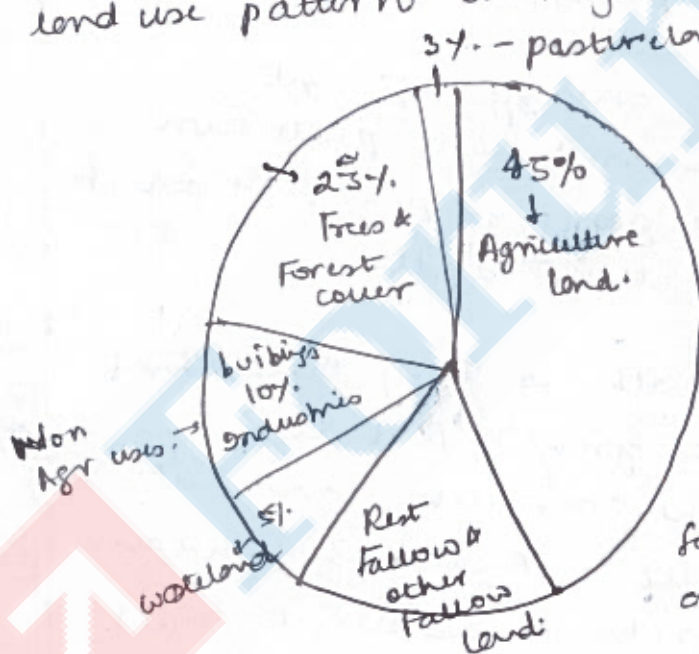 land use pattern
3%. – pasturela
≈ 23%.
Trees &
Forest
cover
45%
↓
Agriculture
land.
buibings
10%.
Industries
Non
Agr uses. →
5%.
wasteland
Rest
Fallow &
other
Fallow
land.
Forum